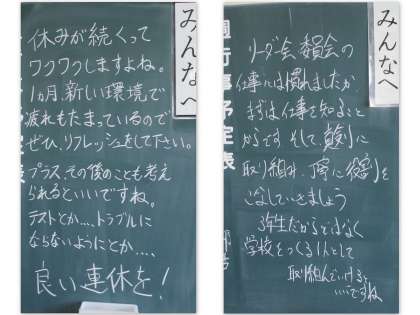 みんなへ
休みが続くって
ワクワクしますよね。
1ヵ月、新しい環境で
疲れもたまっているので
ぜひ、リフレッシュをして下さい。
プラス、その後のことも考え
られるといいですね。
テストとか…、トラブルに
ならないようにとか…、
良い連休を!
みんなへ
行事予定表
リーダー会、委員会の
仕事には慣れましたか
まずは仕事を知ること
からです。そして、真剣に
取り組み、丁寧に役割を
こなしていきましょう
3年生だからではなく
学校をつくる1人として
取り組んでいけると
いいですね